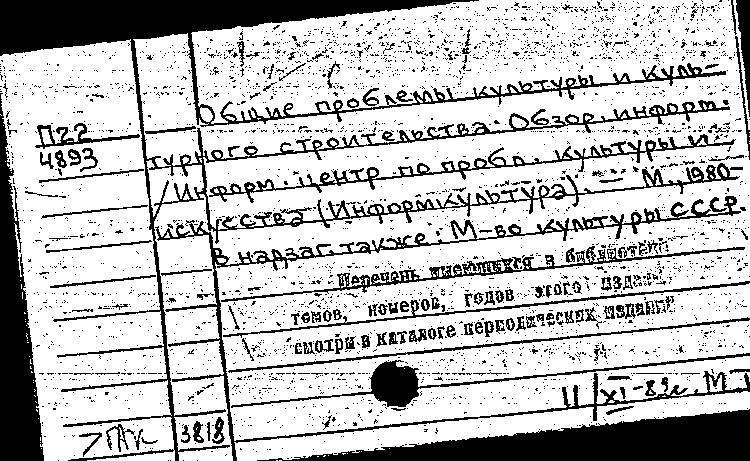 Общие проблемы культуры и куль-
П22
4893
турного строительства: Обзор. информ.
/ Информ. центр по пробл. культуры и
искусства (Информкультура). — М., 1980-
В надзаг. также: М-во культуры СССР.
Перечень имеющихся в библиотеке
томов, номеров, годов этого издания
смотри в каталоге периодических изданий
11/XI-83г.
3818